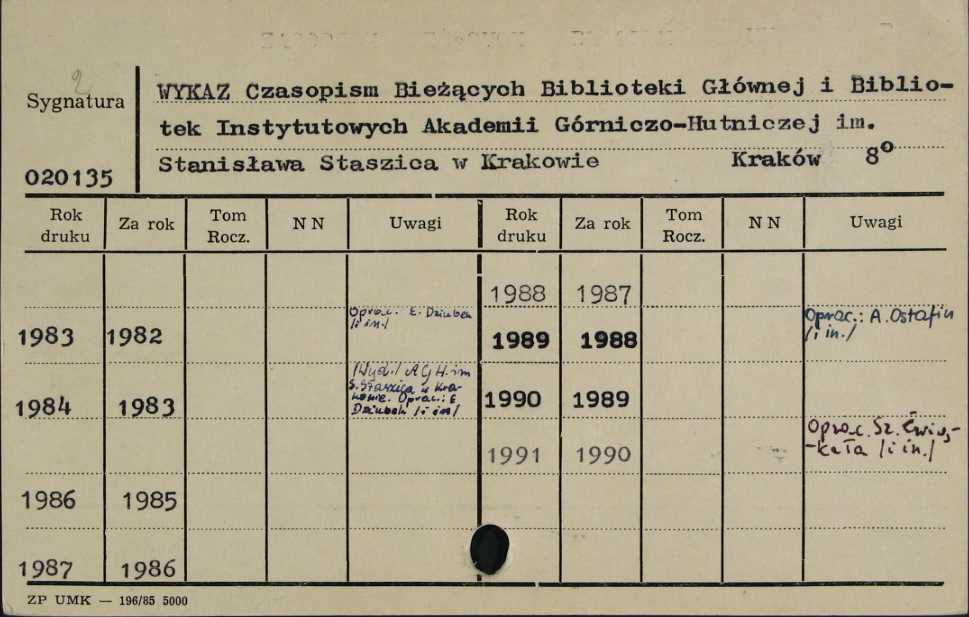 2
Sygnatura
WYKAZ Czasopism Bieżących Biblioteki Głównej i Biblio-
tek Instytutowych Akademii Górniczo-Hutniczej im.
Stanisława Staszica w Krakowie Kraków 8°
020135
Rok druku Za rok Tom Rocz. N N Uwagi Rok druku Za rok Tom Rocz. N N Uwagi
1988 1987
1983 1982 Oprac. E. Dziubek /i in./ 1989 1988 Oprac.: A. Ostafin /i in./
1984 1983 /Wyd./ AGH. im S. Staszica w Kra-
kowie. Oprac.: E. Dziubek /i in/ 1990 1989
1991 1990 Oprac. Sz. /i in./
1986 1985
1987 1986
ZP UMK — 196/85 5000